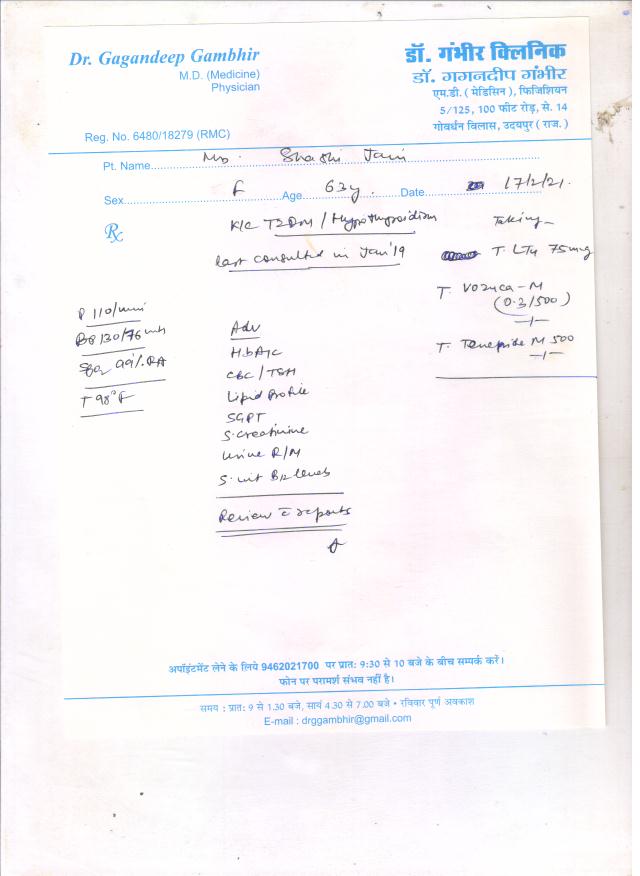 Dr. Gagandeep Gambhir
M.D. (Medicine)
Physician
Reg. No. 6480/18279 (RMC)
डॉ. गंभीर क्लिनिक
डॉ. गगनदीप गंभीर
एम.डी. ( मेडिसिन ), फिजिशियन
5/125, 100 फीट रोड़, से. 14
गोवर्धन विलास, उदयपुर ( राज. )
Pt. Name Mrs. Shashi Jain
Sex F Age 63y. Date 17/2/21.
Rx
K/C T2DM / Hypothyroidism
last consulted in Jan'19
Taking -
T. LT4 75mcg
T. Vozuca-M
(0.3/500)
-/-
T. Tenepride M 500
-/-
P 110/min
BP 130/76
SpO2 99% RA
T 98°F
Adv
HbA1C
CBC / TSH
Lipid Profile
SGPT
S. Creatinine
Urine R/M
S. vit B12 levels
Review c̄ reports
अपॉइंटमेंट लेने के लिये 9462021700 पर प्रातः 9:30 से 10 बजे के बीच सम्पर्क करें।
फोन पर परामर्श संभव नहीं है।
समय : प्रातः 9 से 1.30 बजे, सायं 4.30 से 7.00 बजे • रविवार पूर्ण अवकाश
E-mail : drggambhir@gmail.com